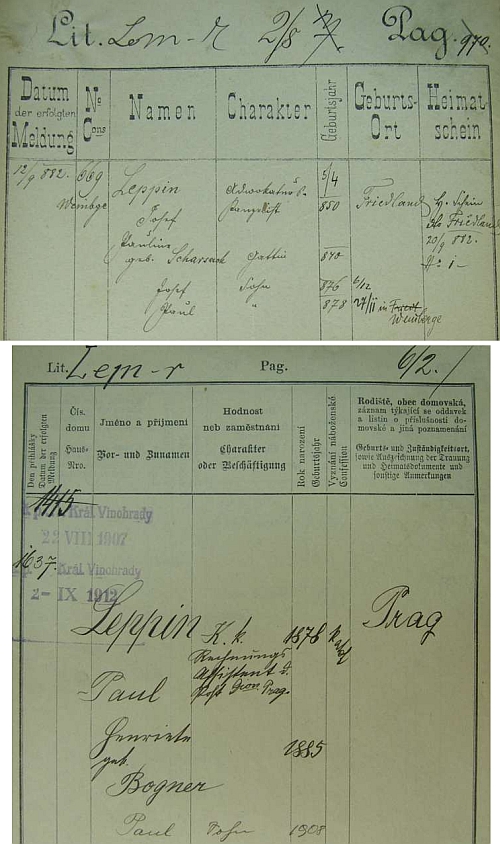 Lit. Lem-r 2/8 Pag. 970.
Datum der erfolgten Meldung
No Cons
Namen
Charakter
Geburtsjahr
Geburts-Ort
Heimat-schein
12/9 882. 669 Leppin 5/4
Weinbge Josef 850 Friedland H. Schein
Friedland
Pauline 20/9 882.
geb. Scharsach Gattin 840
Josef Sohn 876 6/12
Paul " 878 27/11 in Friedl
Weinberge
Lit. Lem-r Pag. 6/2.
Den přihlášky
Datum der erfolgten Meldung
Čís. domu
Haus-Nro.
Jméno a přijmení
Vor- und Zunamen
Hodnost neb zaměstnání
Charakter oder Beschäftigung
Rok narození
Geburtsjahr
Vyznání náboženské
Confession
Rodiště, obec domovská,
záznam týkající se oddavek
a listin o příslušnosti do-
movské a jiná poznamenání
Geburts- und Zuständigkeitsort,
sowie Aufzeichnung der Trauung
und Heimatsdokumente und
sonstige Anmerkungen
1415
Král. Vinohrady
22 VIII 1907
1637.
Král. Vinohrady
2- IX 1912
Leppin K. k. 1878 kath Prag
Rechnungs
Assistent d.
Paul Post Prag.
Henriete 1885
geb.
Bogner
Paul Sohn 1908